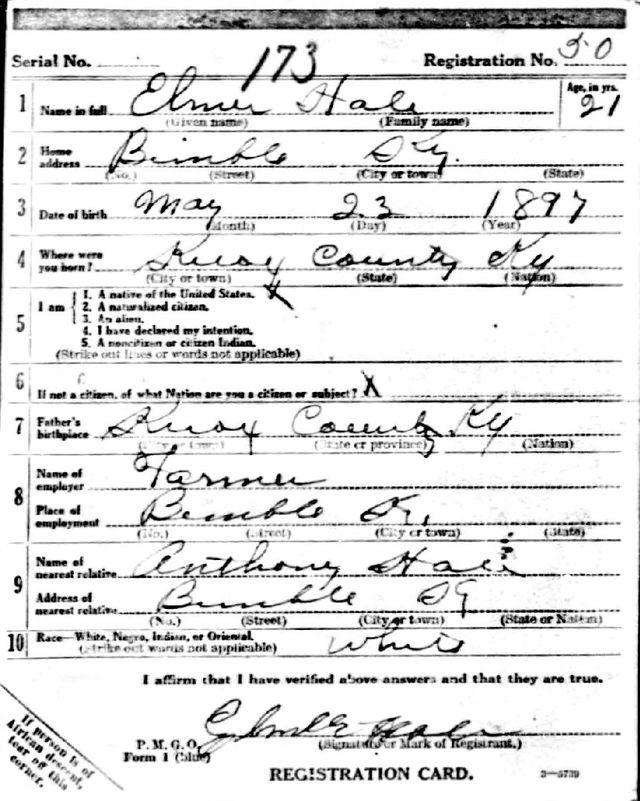 Serial No. 173 Registration No. 50
1 Name in full Elmer Hale Age, in yrs. 21
(Given name) (Family name)
2 Home address Bimble Ky.
(No.) (Street) (City or town) (State)
3 Date of birth May 23 1897
(Month) (Day) (Year)
4 Where were you born? Knox County Ky
(City or town) (State) (Nation)
5 I am
1. A native of the United States. X
2. A naturalized citizen.
3. An alien.
4. I have declared my intention.
5. A noncitizen or citizen Indian.
(Strike out lines or words not applicable)
6 If not a citizen, of what Nation are you a citizen or subject? X
7 Father's birthplace Knox County Ky
(City or town) (State or province) (Nation)
8 Name of employer Farmer
Place of employment Bimble Ky,
(No.) (Street) (City or town) (State)
9 Name of nearest relative Anthony Hale
Address of nearest relative Bimble Ky
(No.) (Street) (City or town) (State or Nation)
10 Race—White, Negro, Indian, or Oriental. White
(Strike out words not applicable)
I affirm that I have verified above answers and that they are true.
Elmer Hale
P. M. G. O. (Signature or Mark of Registrant.)
Form 1 (blue)
REGISTRATION CARD. 3—5739
If person is of
African descent,
tear off this
corner.